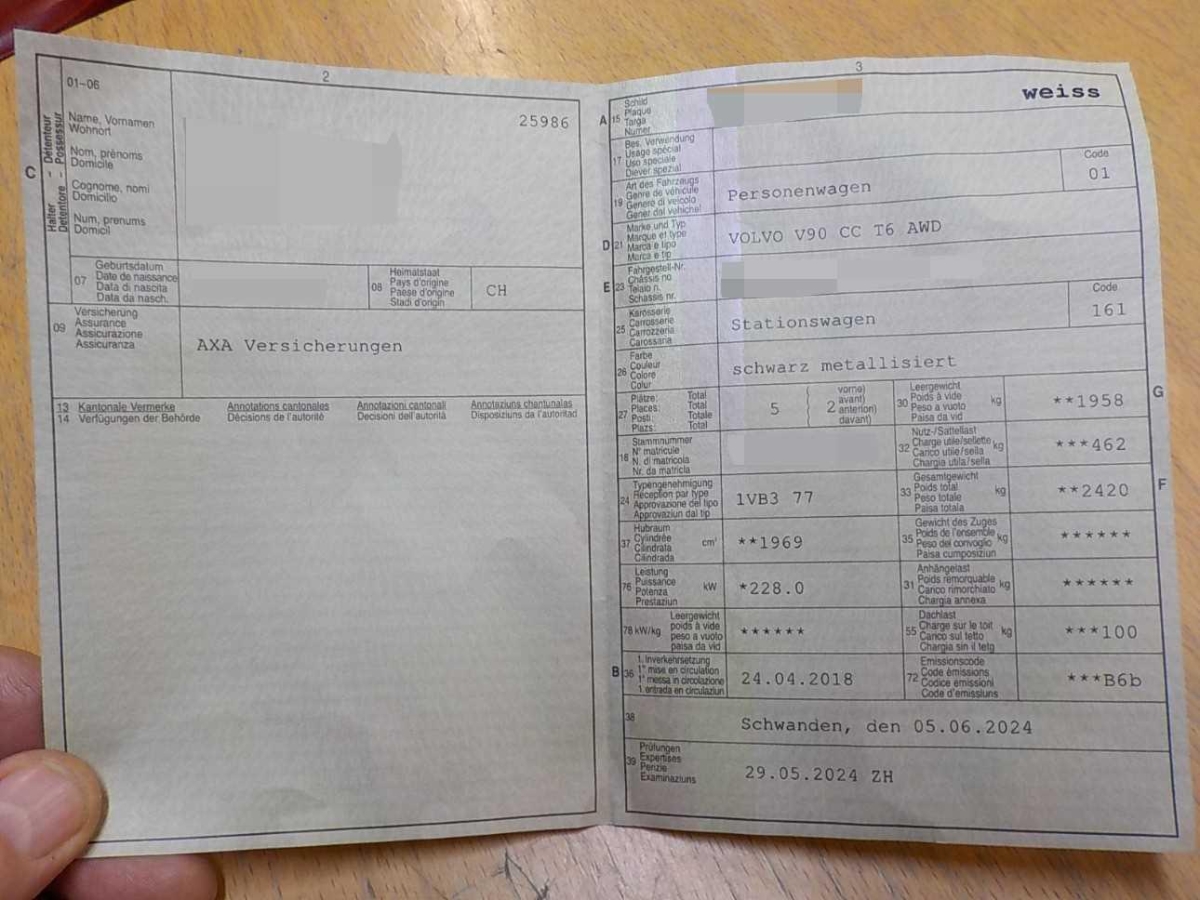 2
01-06
Name, Vornamen
Wohnort
Nom, prénoms
Domicile
Cognome, nomi
Domicilio
Num, prenums
Domicil
C
Halter - Détenteur
Detentore - Possessur
25986
07
Geburtsdatum
Date de naissance
Data di nascita
Data da nasch.
08
Heimatstaat
Pays d'origine
Paese d'origine
Stadi d'origin
CH
09
Versicherung
Assurance
Assicurazione
Assicuranza
AXA Versicherungen
13 Kantonale Vermerke Annotations cantonales Annotazioni cantonali Annotaziuns chantunalas
14 Verfügungen der Behörde Décisions de l'autorité Decisioni dell'autorità Disposiziuns da l'autoritad
3
A 15
Schild
Plaque
Targa
Numer
weiss
17
Bes. Verwendung
Usage spécial
Uso speciale
Diever spezial
19
Art des Fahrzeugs
Genre de véhicule
Genere di veicolo
Gener dal vehichel
Personenwagen
Code
01
D 21
Marke und Typ
Marque et type
Marca e tipo
Marca e tip
VOLVO V90 CC T6 AWD
E 23
Fahrgestell-Nr.
Châssis no
Telaio n.
Schassis nr.
25
Karosserie
Carrosserie
Carrozzeria
Carossaria
Stationswagen
Code
161
26
Farbe
Couleur
Colore
Colur
schwarz metallisiert
27
Plätze: Total
Places: Total
Posti: Totale
Plazs: Total
5
2
vorne)
avant)
anteriori)
davant)
30
Leergewicht
Poids à vide
Peso a vuoto
Paisa da vid
kg
**1958
G
18
Stammnummer
N° matricule
N. di matricola
Nr. da matricla
32
Nutz-/Sattellast
Charge utile/sellette
Carico utile/sella
Chargia utila/sella
kg
***462
24
Typengenehmigung
Réception par type
Approvazione del tipo
Approvaziun dal tip
1VB3 77
33
Gesamtgewicht
Poids total
Peso totale
Paisa totala
kg
**2420
F
37
Hubraum
Cylindrée
Cilindrata
Cilindrada
cm³
**1969
35
Gewicht des Zuges
Poids de l'ensemble
Peso del convoglio
Paisa cumposiziun
kg
******
76
Leistung
Puissance
Potenza
Prestaziun
kW
*228.0
31
Anhängelast
Poids remorquable
Carico rimorchiato
Chargia annexa
kg
******
78 kW/kg
Leergewicht
poids à vide
peso a vuoto
paisa da vid
******
55
Dachlast
Charge sur le toit
Carico sul tetto
Chargia sin il tetg
kg
***100
B 36
1. Inverkehrsetzung
1re mise en circulation
1a messa in circolazione
1. entrada en circulaziun
24.04.2018
72
Emissionscode
Code émissions
Codice emissioni
Code d'emissiuns
***B6b
38
Schwanden, den 05.06.2024
39
Prüfungen
Expertises
Perizie
Examinaziuns
29.05.2024 ZH